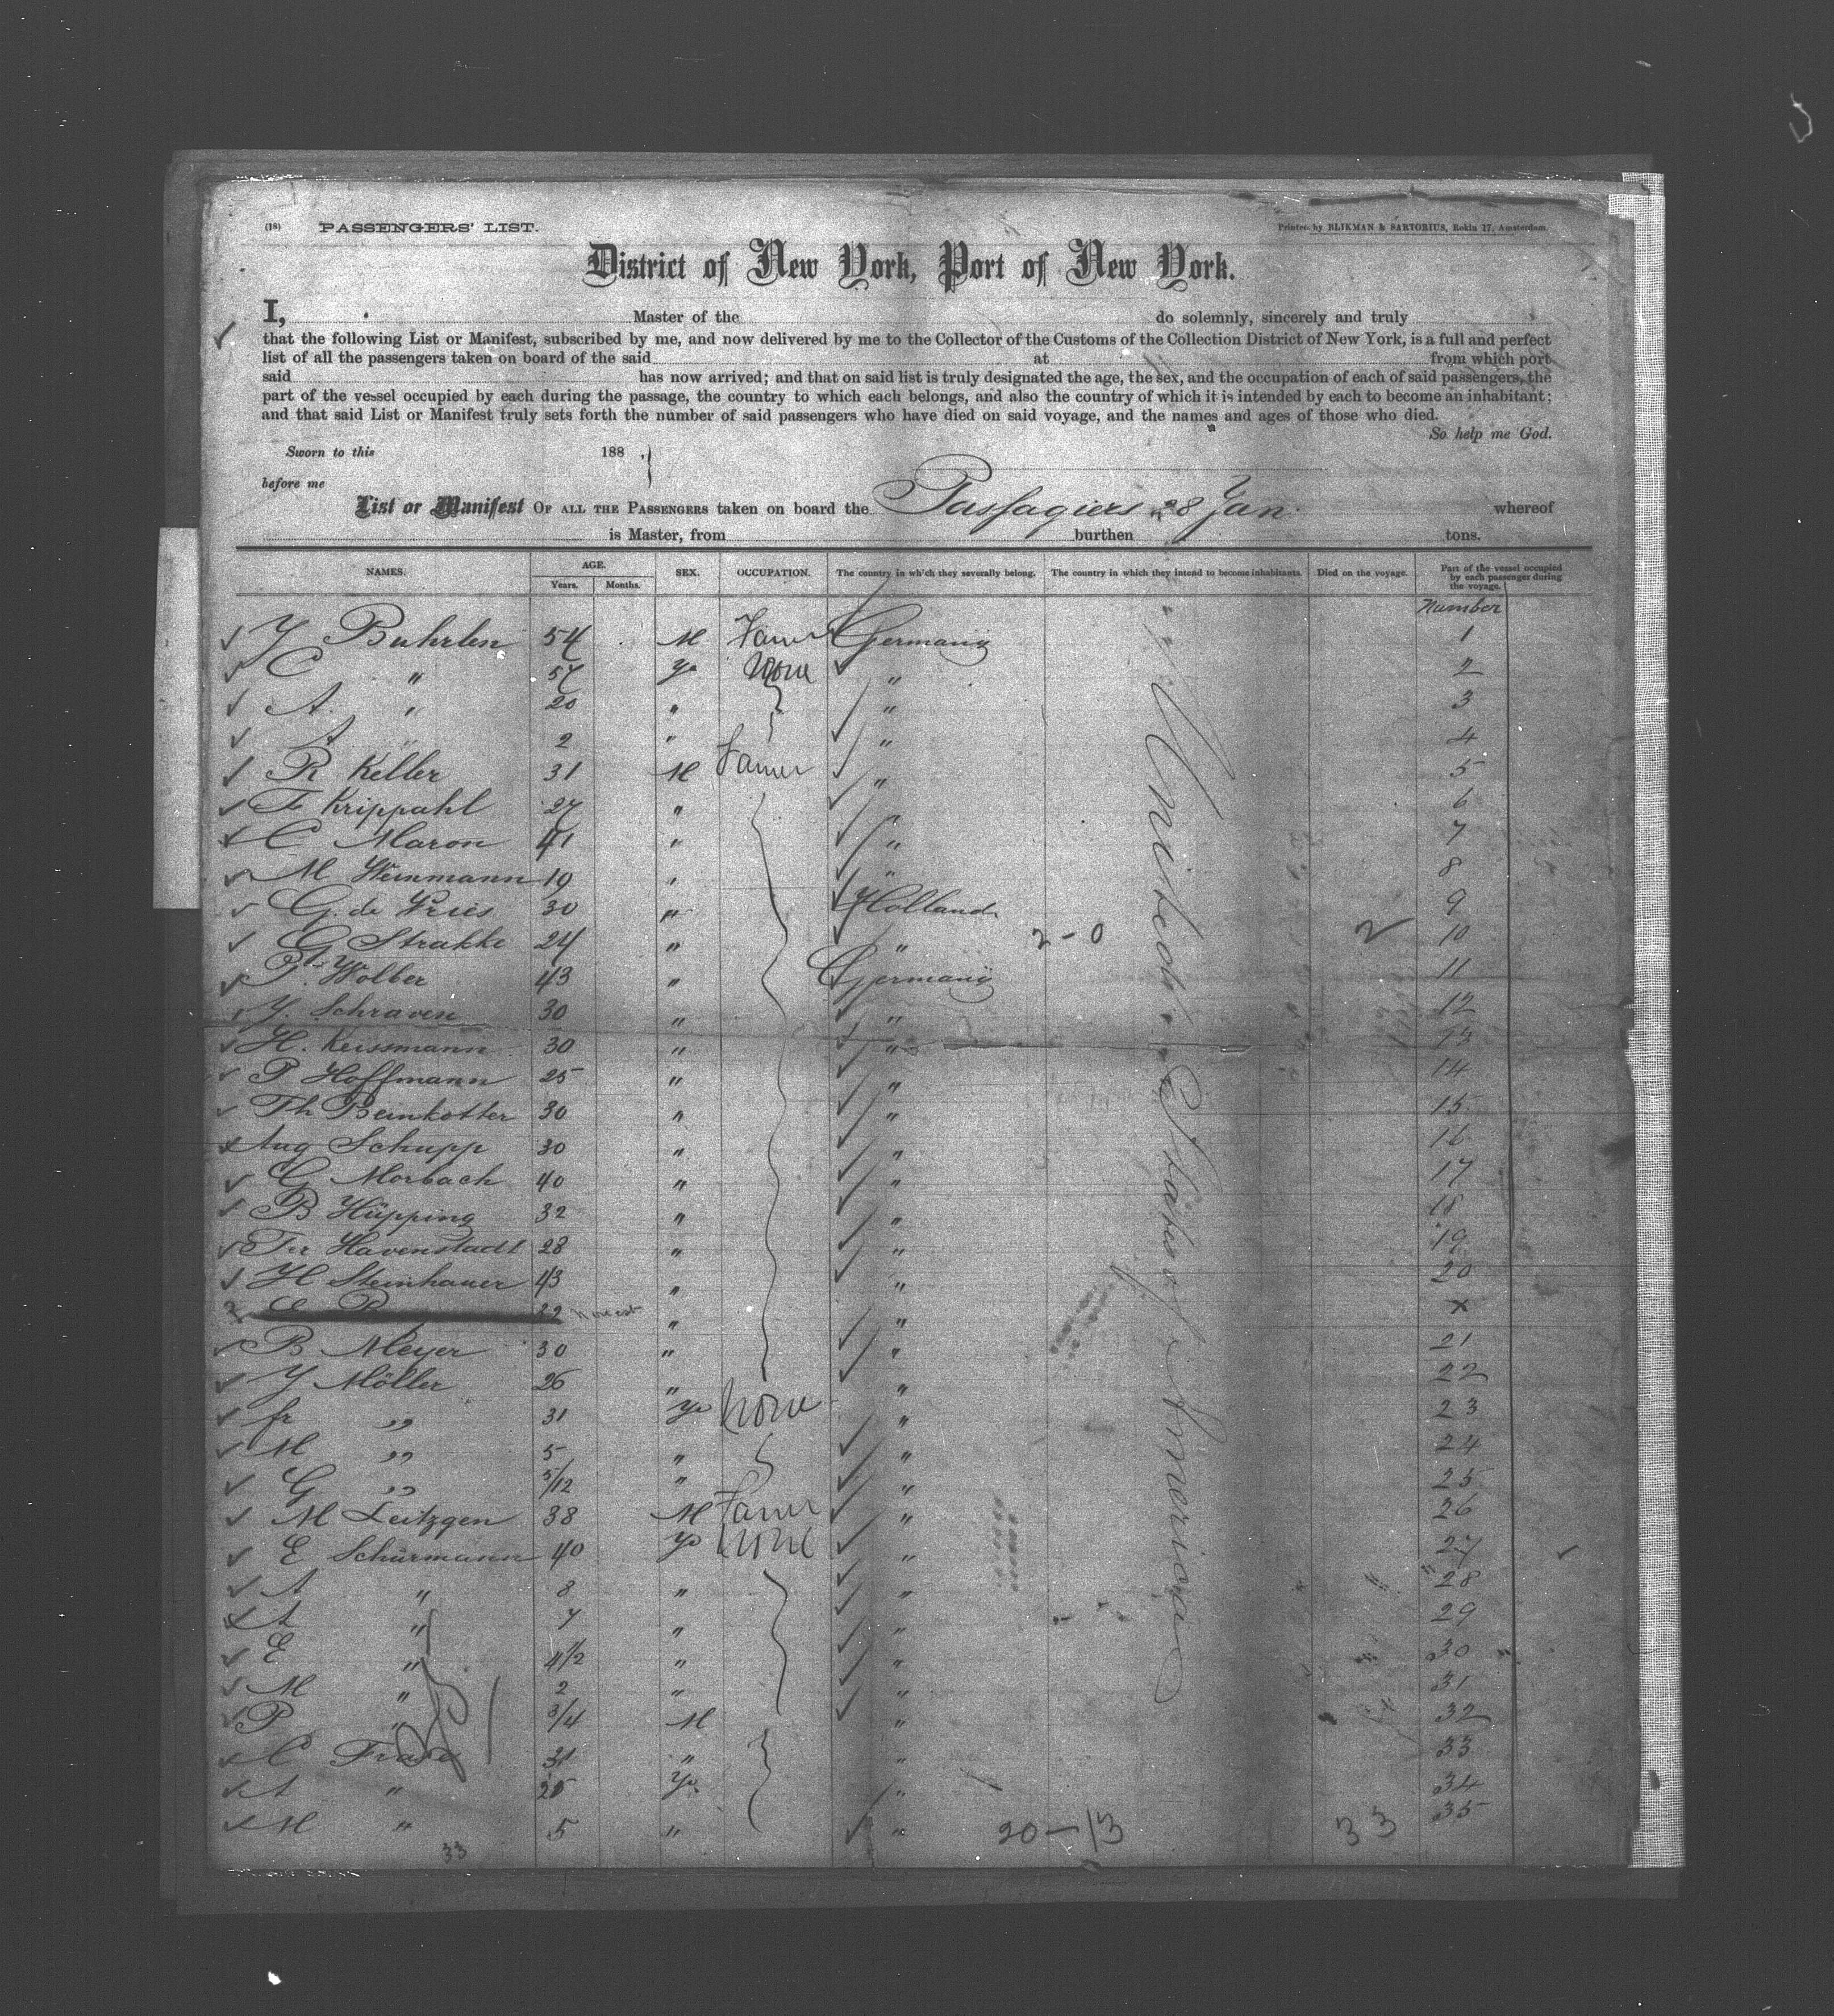 (18) PASSENGERS' LIST. Printed by BLIKMAN & SARTORIUS, Rokin 17, Amsterdam.
District of New York, Port of New York.
I, Master of the do solemnly, sincerely and truly
that the following List or Manifest, subscribed by me, and now delivered by me to the Collector of the Customs of the Collection District of New York, is a full and perfect
list of all the passengers taken on board of the said at from which port
said has now arrived; and that on said list is truly designated the age, the sex, and the occupation of each of said passengers, the
part of the vessel occupied by each during the passage, the country to which each belongs, and also the country of which it is intended by each to become an inhabitant;
and that said List or Manifest truly sets forth the number of said passengers who have died on said voyage, and the names and ages of those who died.
So help me God.
Sworn to this 188 ,
before me
List or Manifest OF ALL THE PASSENGERS taken on board the Passagiers 28 Jan. whereof
is Master, from burthen tons.
NAMES. AGE. Years. Months. SEX. OCCUPATION. The country in which they severally belong. The country in which they intend to become inhabitants. Died on the voyage. Part of the vessel occupied by each passenger during the voyage.
Number
Y Buhrlen 54 M Famer Germany 1
C " 57 None " 2
A. " 20 " " 3
A " 2 " " 4
R Keller 31 M Famer " 5
F Krippahl 27 " " 6
C Maron 41 " " 7
M Weinmann 19 " " 8
G. de Vries 30 " Holland 9
G Strakke 24 " " 2-0 2 10
P. Wolber 43 " Germany 11
Y. Schraven 30 " " 12
H. Keissmann 30 " " 13
P Hoffmann 25 " " 14
Th Beinkotter 30 " " 15
Aug Schupp 30 " " 16
G Morbach 40 " " 17
B Hüpping 32 " " 18
Fr Havenstadt 28 " " 19
H Steinhauer 43 " " 20
22 " " x
B Meyer 30 " " 21
Y Möller 26 " " 22
fr " 31 None " 23
M " 5 " " 24
G " 5/12 " " 25
M Leitzgen 38 M Famer " 26
E Schürmann 40 None " 27
A " 8 " " 28
A " 7 " " 29
E " 4 1/2 " " 30
M " 2 " " 31
P " 3/4 M " 32
C 31 " " 33
A " 25 " 34
M " 5 " " 35
33 20-13 33
United States of America